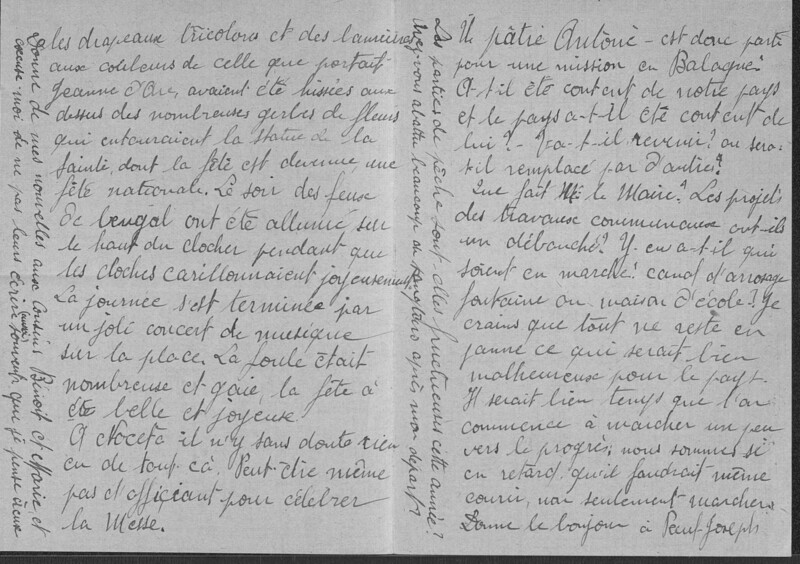 les drapeaux tricolores et des bannières
aux couleurs de celle que portait
Jeanne d'Arc, avaient été hissées aux
dessus des nombreuses gerbes de fleurs
qui entouraient la statue de la
Sainte, dont la fête est devenue une
fête nationale. Le soir des feux
de bengal ont été allumé sur
le haut du clocher pendant que
les cloches carillonnaient joyeusement
La journée s'est terminée par
un joli concert de musique
sur la place. La foule était
nombreuse et gaie, la fête a
été belle et joyeuse.
A il n'y sans doute rien
eu de tout çà. Peut-être même
pas et officiant pour célébrer
la Messe.
Donne de mes nouvelles aux cousins Benoit et Marie et
excuse moi de ne pas leurs écrire souvent que je pense à eux
(aussi)
U pâtre Antône - est donc parti
pour une mission en Balagne.
A t-il été content de notre pays
et le pays a-t-il été content de
lui? - Va-t-il revenir? ou sera-
t-il remplacé par d'autres?
Que fait Mr le Maire? Les projets
des travaux communaux ont-ils
un débouché? Y en a-t-il qui
soient en marche? canal d'arrosage
fontaine ou maison d'école? Je
crains que tout ne reste en
panne ce qui serait bien
malheureux pour le pays.
Il serait bien temps que l'on
commence à marcher un peu
vers le progrès; nous sommes si
en retard qu'il faudrait même
courir, non seulement marcher.
Donne le bonjour à Paul-Joseph
Les parties de pêche sont-elles fructueuses cette année?
Avez-vous abattu beaucoup de après mon départ?